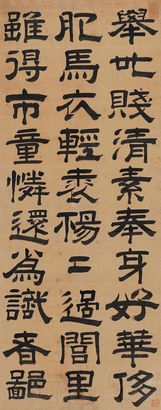 舉世賤清素奉身好華侈
肥馬衣輕裘揚二過閭里
雖得市童憐還為識者鄙